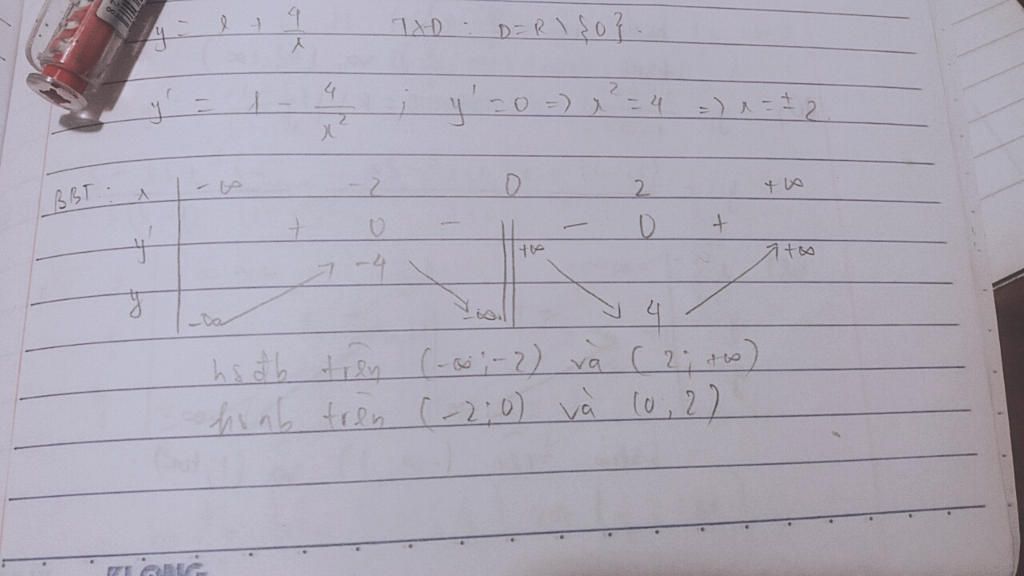 y = x + 4/x TXD : D=R \ {0}.
y' = 1 - 4/x² ; y'=0 => x²=4 => x=±2
BBT: x -∞ -2 0 2 +∞
y' + 0 - || - 0 +
y -∞ ↗ -4 ↘ -∞ || +∞ ↘ 4 ↗ +∞
hsđb trên (-∞;-2) và (2;+∞)
hsnb trên (-2;0) và (0,2)
KLONG